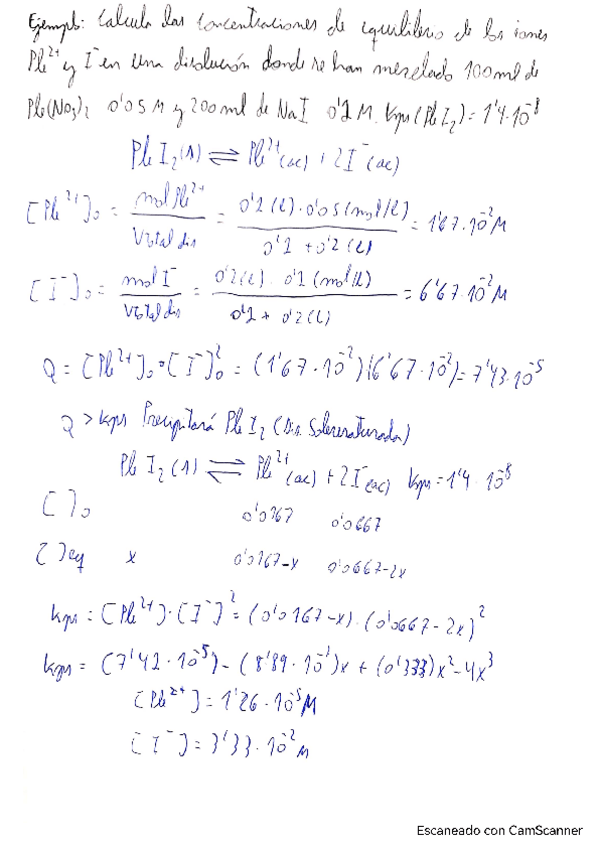 Ejemplo: Calcula las concentraciones de equilibrio de los iones
Pb²⁺ y I⁻ en una disolución donde se han mezclado 100 ml de
Pb(NO₃)₂ 0'05 M y 200 ml de NaI 0'1 M. Kps (PbI₂) = 1'4·10⁻⁸
PbI₂(s) ⇌ Pb²⁺(ac) + 2I⁻(ac)
[Pb²⁺]₀ = mol Pb²⁺ / V total dis = 0'1(l)·0'05(mol/l) / 0'1 + 0'2(l) = 1'67·10⁻² M
[I⁻]₀ = mol I⁻ / V total dis = 0'2(l)·0'1(mol/l) / 0'1 + 0'2(l) = 6'67·10⁻² M
Q = [Pb²⁺]₀·[I⁻]₀² = (1'67·10⁻²)(6'67·10⁻²) = 7'43·10⁻⁵
Q > Kps Precipitará PbI₂ (Dis. Sobresaturada)
PbI₂(s) ⇌ Pb²⁺(ac) + 2I⁻(ac) Kps = 1'4·10⁻⁸
[ ]₀ 0'0167 0'0667
[ ]eq x 0'0167-x 0'0667-2x
Kps = [Pb²⁺]·[I⁻]² = (0'0167-x)·(0'0667-2x)²
Kps = (7'42·10⁻⁵) - (8'89·10⁻³)x + (0'333)x² - 4x³
[Pb²⁺] = 1'26·10⁻⁵ M
[I⁻] = 3'33·10⁻² M
Escaneado con CamScanner